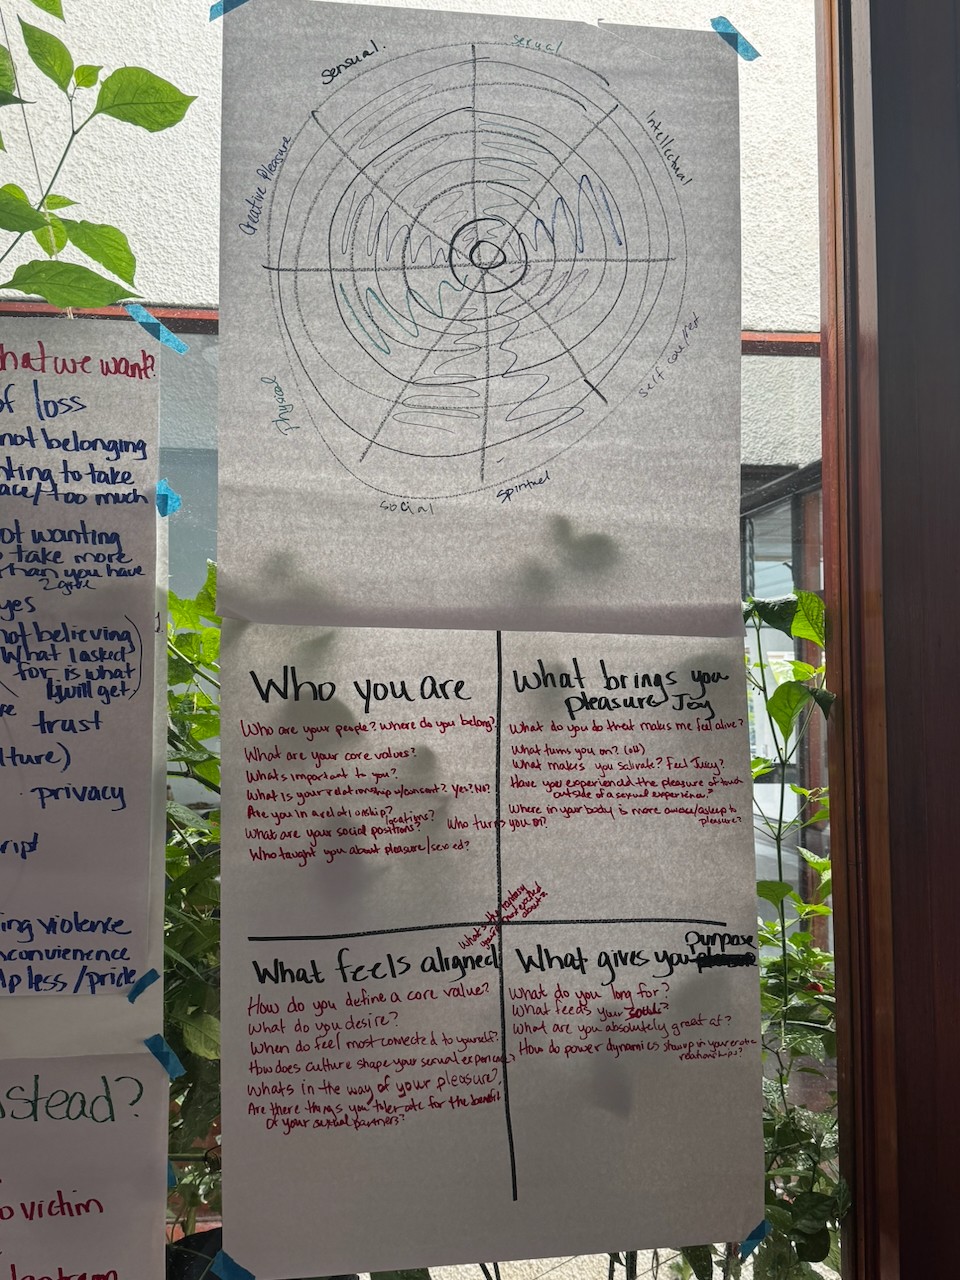 sensual.
sexual
Intellectual
Creative Pleasure
self care/rest
physical
social
spiritual
what we want?
of loss
not belonging
to take
/too much
not wanting
take more
than you have
2 give
yes
not believing
What I asked
for is what
I will get
trust
privacy
violence
less/pride
instead?
victim
Who you are
Who are your people? Where do you belong?
What are your core values?
What's important to you?
What is your relationship w/consent? Yes? No?
Are you in a relationship?
locations?
What are your social positions?
Who turns you on?
Who taught you about pleasure/sex ed?
What brings you
pleasure Joy
What do you do that makes me feel alive?
What turns you on? (all)
What makes you salivate? Feel Juicy?
Have you experienced the pleasure of touch
outside of a sexual experience?
Where in your body is more aware/asleep to
pleasure?
What's the fantasy
your most excited
about?
What feels aligned
How do you define a core value?
What do you desire?
When do feel most connected to yourself?
How does culture shape your sexual experience?
Whats in the way of your pleasure?
Are there things you tolerate for the benefit
of your sexual partners?
purpose
What gives you
What do you long for?
What feeds your soul?
What are you absolutely great at?
How do power dynamics show up in your erotic
relationships?